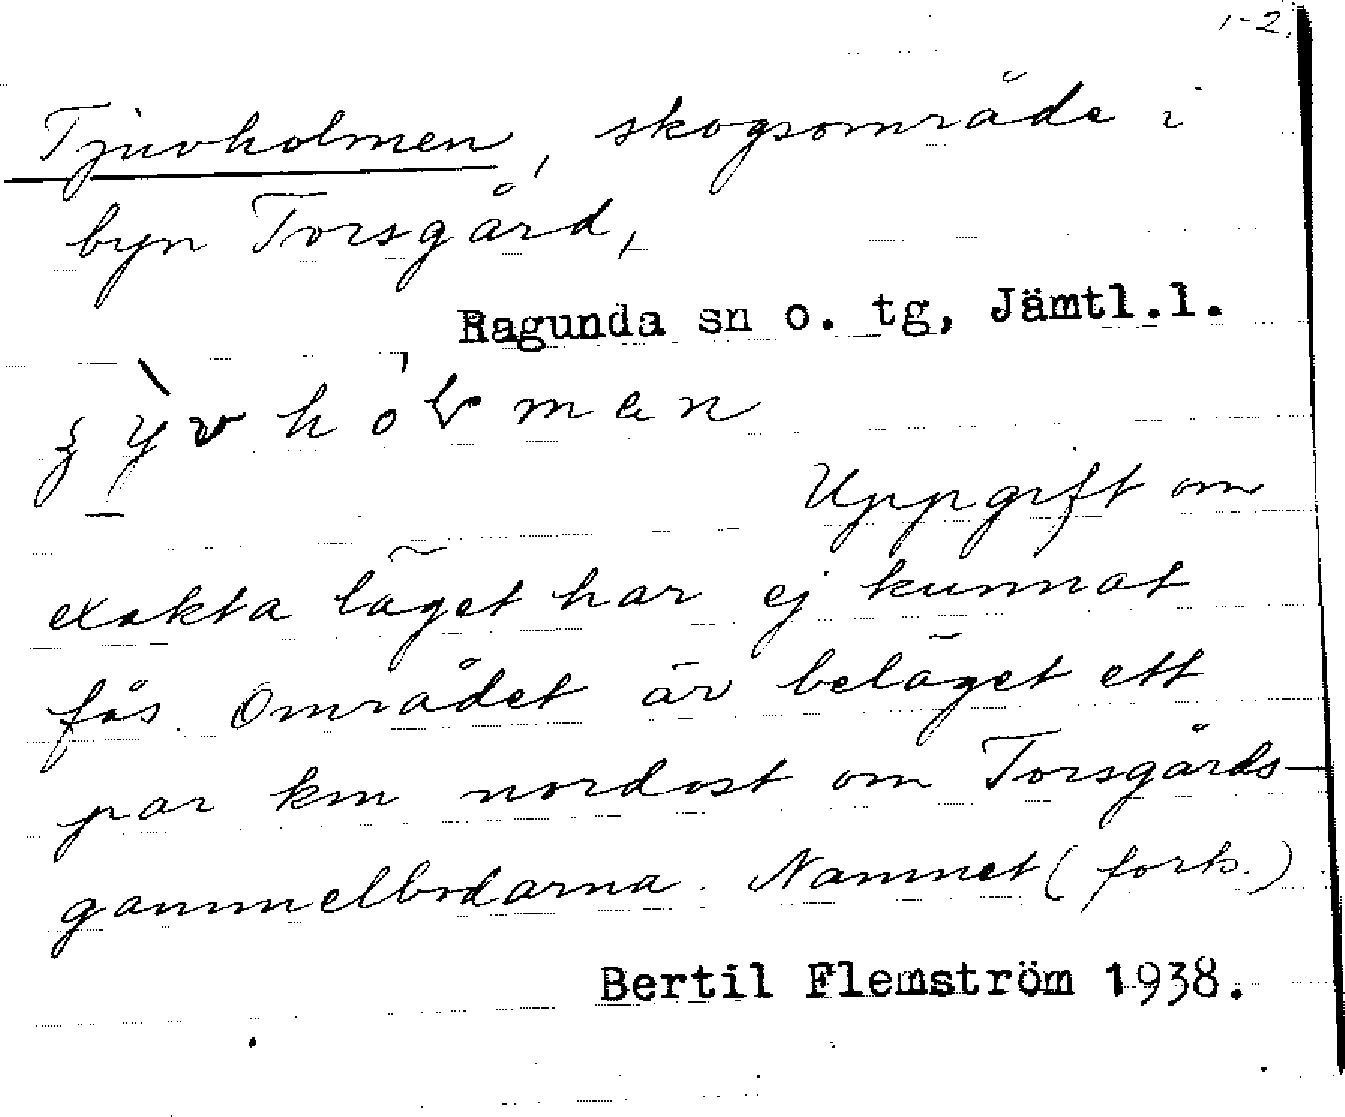 1-2.
Tjuvholmen, skogsområde i
byn Torsgård,
Ragunda sn o. tg, Jämtl.l.
Uppgift om
exakta läget har ej kunnat
fås. Området är beläget ett
par km nordost om Torsgårds-
gammelbodarna. Namnet (forts.)
Bertil Flemström 1938.